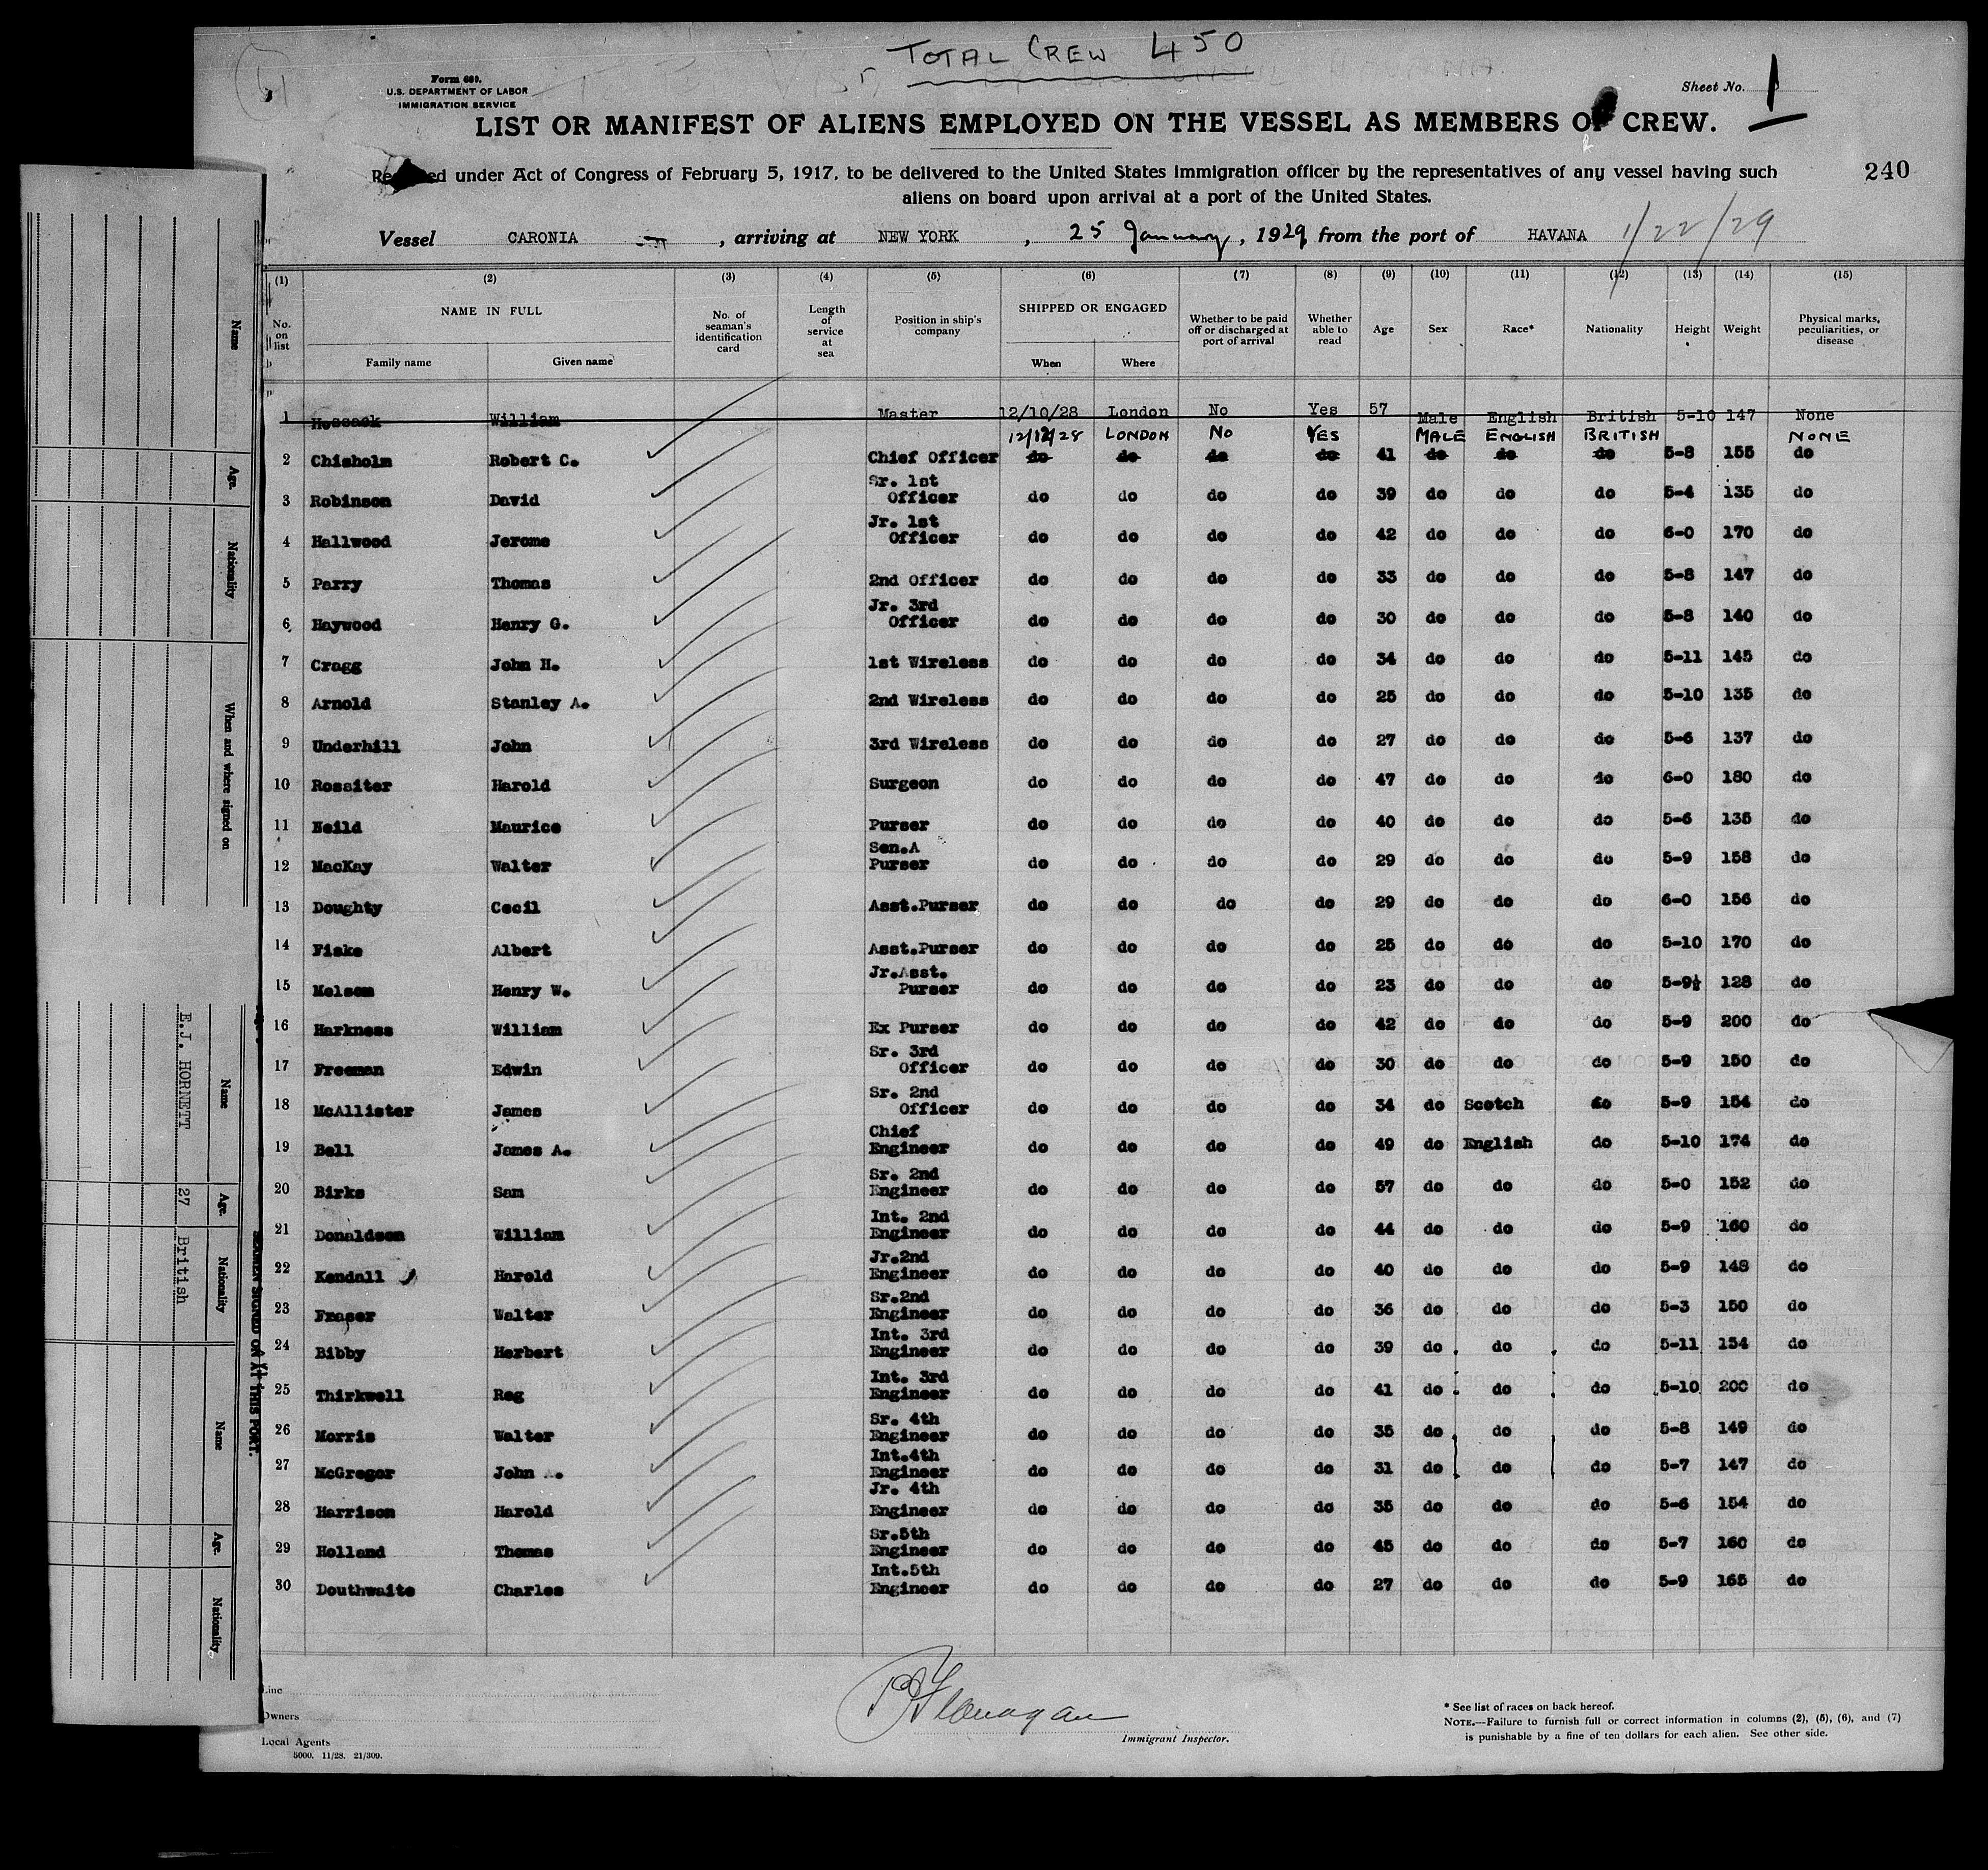 TOTAL CREW 450
Form 680.
U.S. DEPARTMENT OF LABOR
IMMIGRATION SERVICE
Sheet No. 1
LIST OR MANIFEST OF ALIENS EMPLOYED ON THE VESSEL AS MEMBERS OF CREW.
240
under Act of Congress of February 5, 1917, to be delivered to the United States immigration officer by the representatives of any vessel having such
aliens on board upon arrival at a port of the United States.
Vessel CARONIA, arriving at NEW YORK, 25 January, 1929, from the port of HAVANA 1/22/29
(1) (2) (3) (4) (5) (6) (7) (8) (9) (10) (11) (12) (13) (14) (15)
No. on list NAME IN FULL Family name Given name No. of seaman's identification card Length of service at sea Position in ship's company SHIPPED OR ENGAGED When Where Whether to be paid off or discharged at port of arrival Whether able to read Age Sex Race* Nationality Height Weight Physical marks, peculiarities, or disease
1 William Master 12/10/28 London No Yes 57 Male English British 5-10 147 None
12/12/28 LONDON NO YES MALE ENGLISH BRITISH NONE
2 Chisholm Robert C. Chief Officer do do do do 41 do do do 5-8 155 do
3 Robinson David Sr. 1st Officer do do do do 39 do do do 5-4 135 do
4 Hallwood Jerome Jr. 1st Officer do do do do 42 do do do 6-0 170 do
5 Parry Thomas 2nd Officer do do do do 33 do do do 5-8 147 do
6 Haywood Henry G. Jr. 3rd Officer do do do do 30 do do do 5-8 140 do
7 Cragg John H. 1st Wireless do do do do 34 do do do 5-11 145 do
8 Arnold Stanley A. 2nd Wireless do do do do 25 do do do 5-10 135 do
9 Underhill John 3rd Wireless do do do do 27 do do do 5-6 137 do
10 Rossiter Harold Surgeon do do do do 47 do do do 6-0 180 do
11 Neild Maurice Purser do do do do 40 do do do 5-6 135 do
12 MacKay Walter Sen.A Purser do do do do 29 do do do 5-9 158 do
13 Doughty Cecil Asst.Purser do do do do 29 do do do 6-0 156 do
14 Fiske Albert Asst.Purser do do do do 25 do do do 5-10 170 do
15 Melsom Henry W. Jr.Asst. Purser do do do do 23 do do do 5-9½ 128 do
16 Harkness William Ex Purser do do do do 42 do do do 5-9 200 do
17 Freeman Edwin Sr. 3rd Officer do do do do 30 do do do 5-9 150 do
18 McAllister James Sr. 2nd Officer do do do do 34 do Scotch do 5-9 154 do
19 Bell James A. Chief Engineer do do do do 49 do English do 5-10 174 do
20 Birks Sam Sr. 2nd Engineer do do do do 57 do do do 5-0 152 do
21 Donaldson William Int. 2nd Engineer do do do do 44 do do do 5-9 160 do
22 Kendall Harold Jr.2nd Engineer do do do do 40 do do do 5-9 148 do
23 Fraser Walter Sr.2nd Engineer do do do do 36 do do do 5-3 150 do
24 Bibby Herbert Int. 3rd Engineer do do do do 39 do do do 5-11 154 do
25 Thirkwell Reg Int. 3rd Engineer do do do do 41 do do do 5-10 200 do
26 Morris Walter Sr. 4th Engineer do do do do 35 do do do 5-8 149 do
27 McGregor John Int.4th Engineer do do do do 31 do do do 5-7 147 do
28 Harrison Harold Jr. 4th Engineer do do do do 35 do do do 5-6 154 do
29 Holland Thomas Sr.5th Engineer do do do do 45 do do do 5-7 160 do
30 Douthwaite Charles Int.5th Engineer do do do do 27 do do do 5-9 165 do
Line
Owners
Local Agents
5000. 11/28. 21/309.
Flanagan
Immigrant Inspector.
* See list of races on back hereof.
NOTE.—Failure to furnish full or correct information in columns (2), (5), (6), and (7)
is punishable by a fine of ten dollars for each alien. See other side.
Name Age. Nationality When and where signed on
Name Age. Nationality
E.J. HORNETT 27 British
Name Age. Nationality
SEAMEN SIGNED ON AT THIS PORT.